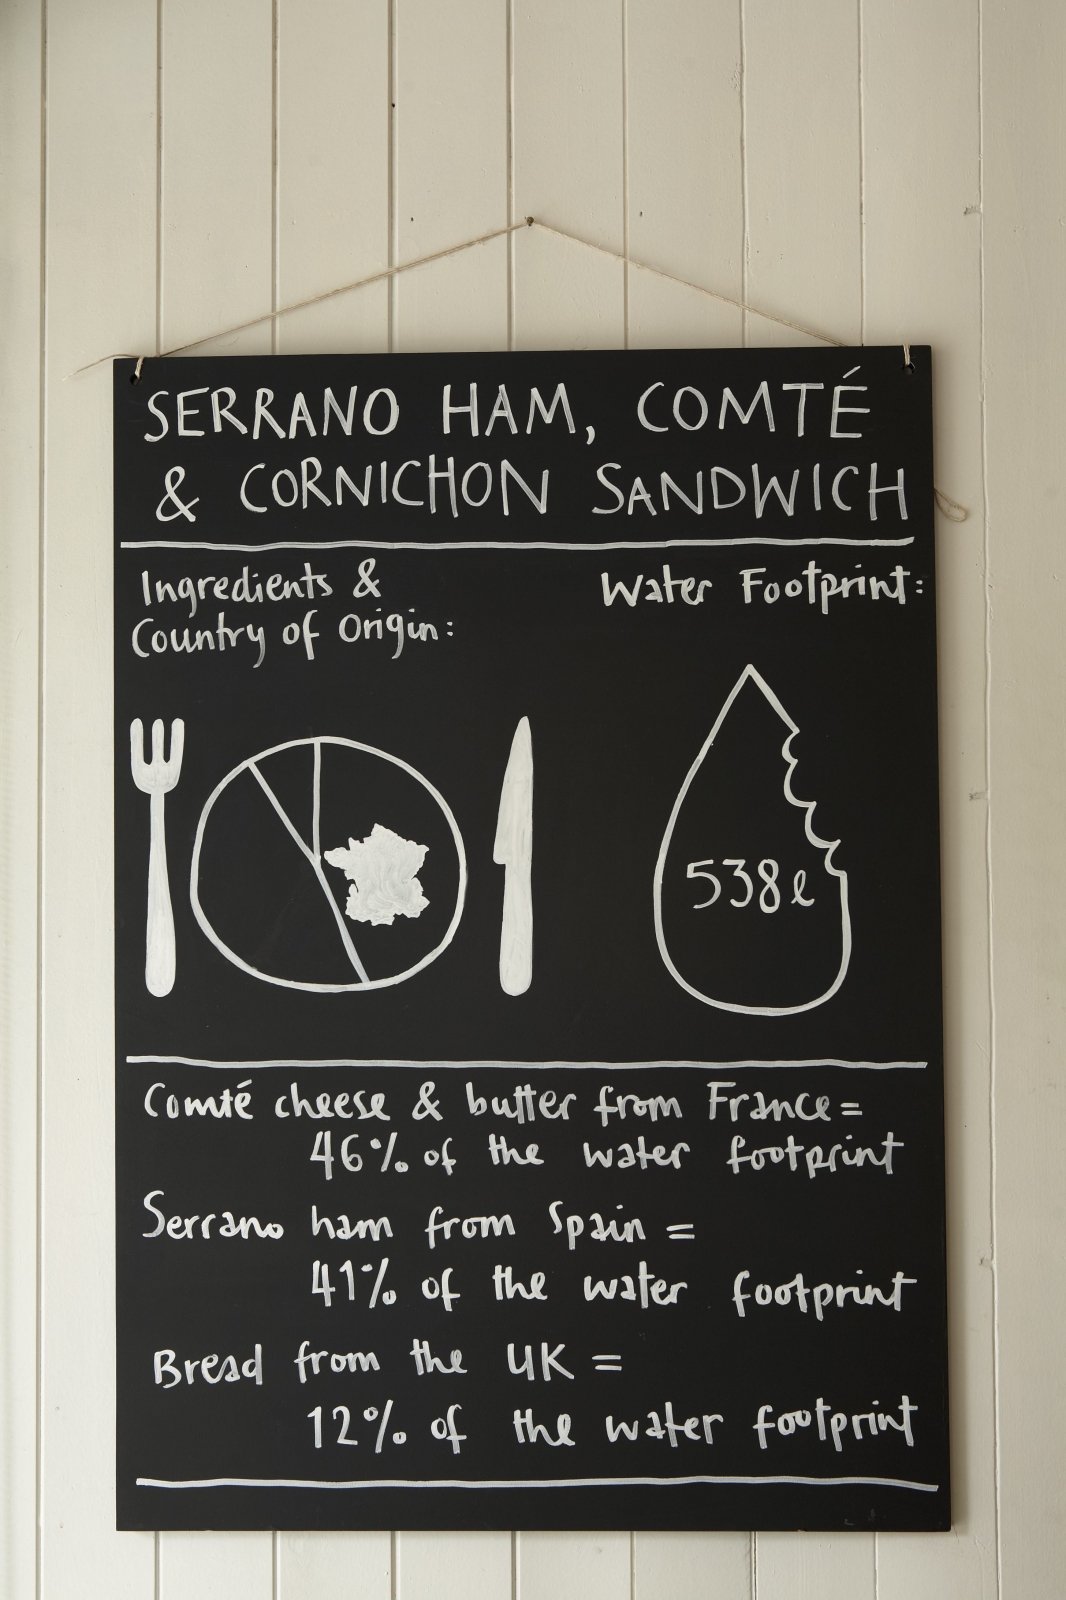 SERRANO HAM, COMTÉ
& CORNICHON SANDWICH
Ingredients &
Country of Origin:
Water Footprint:
538l
Comté cheese & butter from France =
46% of the water footprint
Serrano ham from Spain =
41% of the water footprint
Bread from the UK =
12% of the water footprint